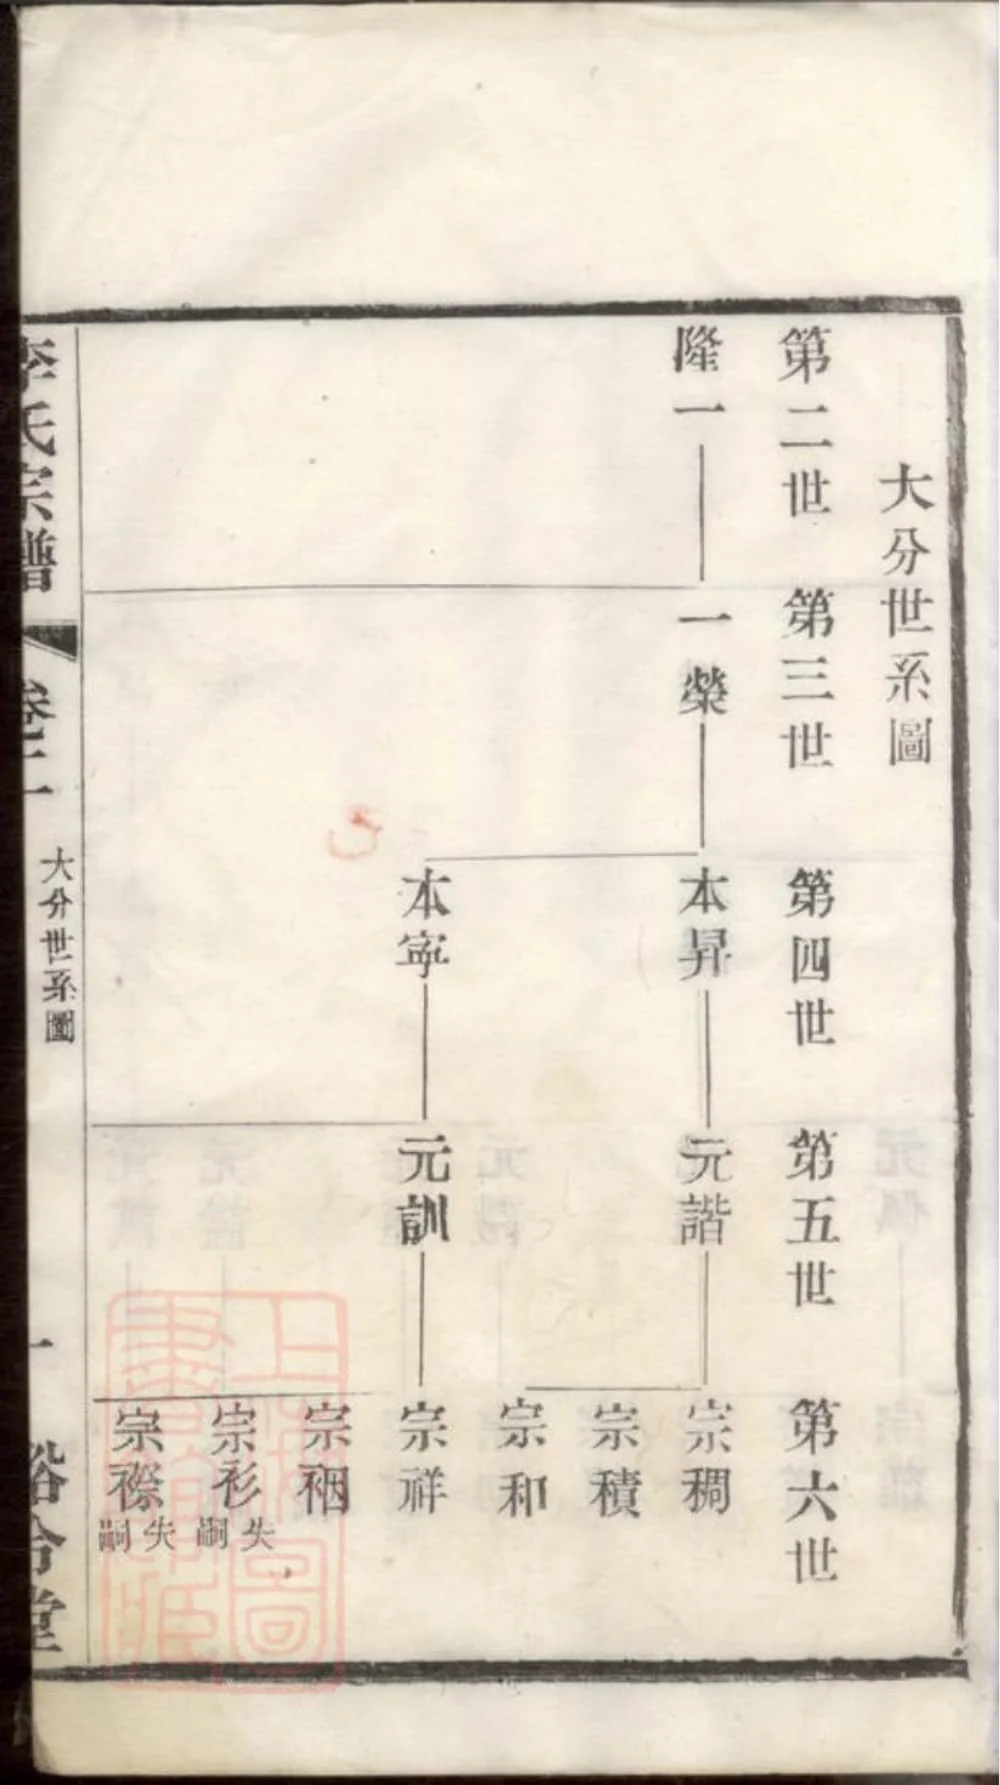 大分世系圖
第二世
第三世
第四世
第五世
第六世
隆一
一榮
本昇
元諧
宗稠
宗積
宗和
本寧
元訓
宗祥
宗䄄
宗衫
失嗣
宗襟
失嗣
李氏宗譜
卷二
大分世系圖
一
上海圖書館藏